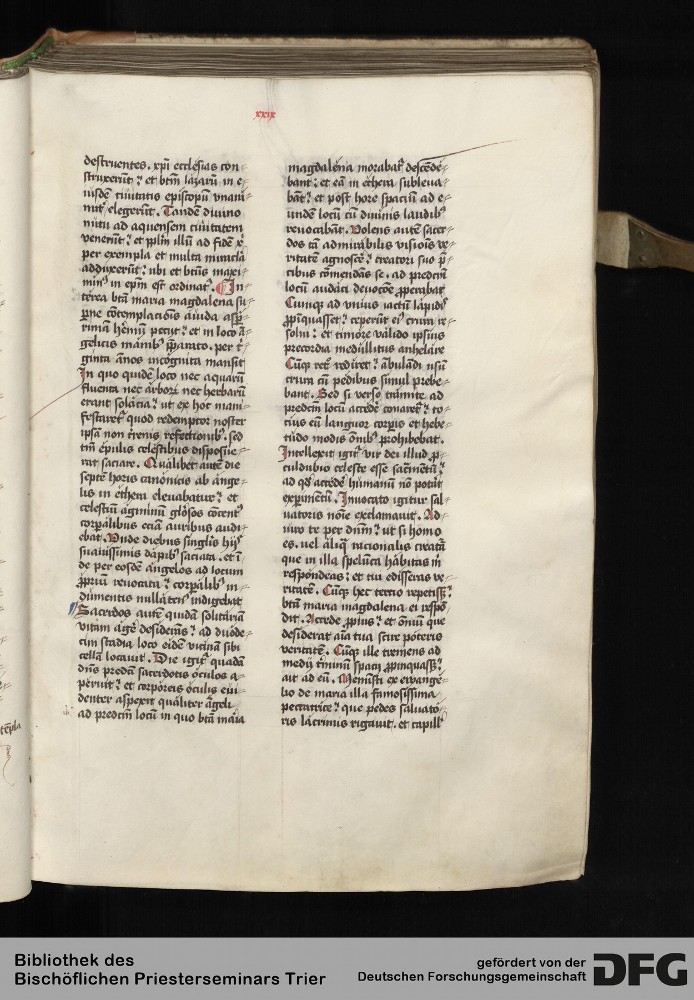 xxix
destruentes. xpi ecclesias con⸗
struxerūt ⁊ et btm̄ lazarū in e⸗
iusdē ciuitatis episcopū vnani⸗
mit̄ elegerūt. Tandē diuino
nutu ad aquensem ciuitatem
venerūt ⁊ et pplm̄ illū ad fidē x̄
per exempla et multa miracl̄a
adduxerūt ⁊ vbi et btūs maxi⸗
minꝰ in epm̄ est ordinatꝰ. In⸗
terea btā maria magdalena su⸗
perne cōtemplacōis auida asp̄⸗
rimā hēmū petijt ⁊ et in loco ā⸗
gelicis manibꝰ p̄parato. per t̄⸗
ginta ānos incognita mansit
In quo quidē loco nec aquarū
fluenta nec arborꝝ nec herbarū
erant solacia ⁊ ut ex hoc mani⸗
festaret᷑ quod redemptor noster
ipsā non t̄renis refectionibꝰ. sed
tm̄ epulis celestibus disposue⸗
rat saciare. Qualibet autē die
septē horis canonicis ab ange⸗
lis in ethera eleuabatur ⁊ et
celestiū agminū gl̄osos cōcentꝰ
corp̄alibus eciā auribus audi⸗
ebat. Unde diebus singl̄is hijs
suauissimis dapibꝰ saciata. et ī⸗
de per eosdē angelos ad locum
ꝓpriū reuocata ⁊ corp̄alibꝰ in⸗
dumentis nullaten̄ indigebat
Sacerdos autē quidā solitariā
vitam agē desiderās ⁊ ad duode⸗
cim stadia loco eidē vicinā sibi
cellā locauit. Die igit᷑ quadā
dn̄s predcī sacerdotis oculos a⸗
peruit ⁊ et corporeis oculis eui⸗
denter aspexit qualiter āgeli
ad predcm̄ locū in quo btā m̄aia
magdalena morabat᷑ descēde⸗
bant ⁊ et eā in ethera subleua⸗
bāt ⁊ et post hore spaciū ad e⸗
undē locū cū diuinis laudibꝰ
reuocabāt. Volens autē sacer⸗
dos tā admirabilis visiōis ve⸗
ritatē agnoscē ⁊ creatori suo p̄⸗
cibus cōmendās se. ad predcm̄
locū audaci deuocōe ꝓperabat
Cumqꝫ ad vnius iactū lapidꝭ
ꝓpīquasset ⁊ ceperūt eiꝰ crura re⸗
solui ⁊ et timore valido ipsius
precordia medullitus anhelare
Cūqꝫ ret᷑ rediret ⁊ ābulādi usū
crura cū pedibus simul prebe⸗
bant. Sed si verso tramite ad
predcm̄ locū accedē conaret᷑ ⁊ to⸗
cius eū languor corpis et hebe⸗
tudo modis ōnibꝰ ꝓhibebat.
Intellexit igit᷑ vir dei illud ꝓ⸗
culdubio celeste esse sacm̄entū ⁊
ad qd̄ accedē humanū nō potuit
experimentū. Inuocato igitur sal⸗
uatoris noīe exclamauit. Ad⸗
iuro te per dn̄m ⁊ ut si homo
es. vel aliqͣ racionalis creatā
que in illa spelūca habitas m̄
respondeas ⁊ et tui edisseras ve⸗
ritatē. Cūqꝫ hec tercio repetisset ⁊
btā maria magdalena ei respō⸗
dit. Accede ꝓpius ⁊ et ōniū que
desiderat aīa tua scire poteris
veritatē. Cūqꝫ ille tremens ad
medij t̄minū spacij ꝓpinquasset ⁊
ait ad eū. Meministi ex ewange⸗
lio de maria illa famosissima
peccatrice ⁊ que pedes saluato⸗
ris lacrimis rigauit. et capillꝭ
Bibliothek des
Bischöflichen Priesterseminars Trier
gefördert von der
Deutschen Forschungsgemeinschaft
DFG